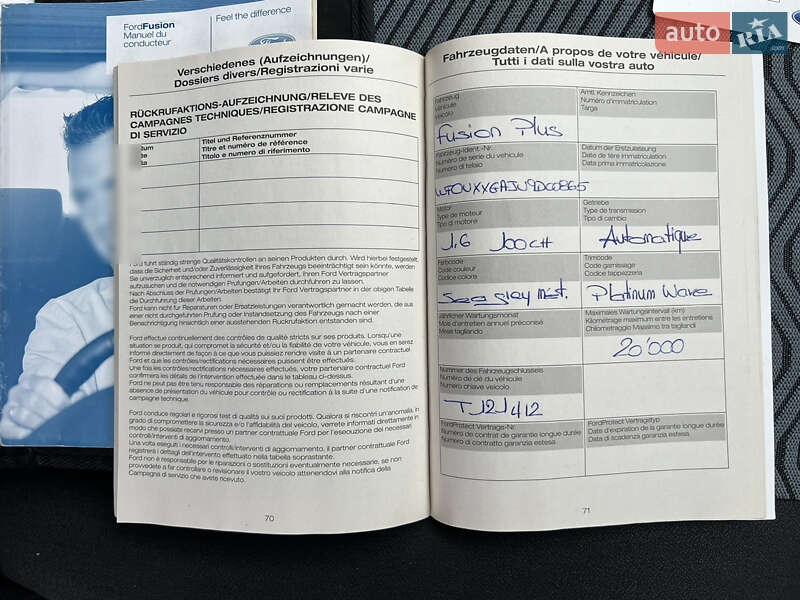 FordFusion
Manuel du
conducteur
Feel the difference
auto RIA.com
Verschiedenes (Aufzeichnungen)/
Dossiers divers/Registrazioni varie
RÜCKRUFAKTIONS-AUFZEICHNUNG/RELEVE DES
CAMPAGNES TECHNIQUES/REGISTRAZIONE CAMPAGNE
DI SERVIZIO
Titel und Referenznummer
Titre et numéro de référence
Titolo e numero di riferimento
Ford führt ständig strenge Qualitätskontrollen an seinen Produkten durch. Wird hierbei festgestellt,
dass die Sicherheit und/oder Zuverlässigkeit Ihres Fahrzeugs beeinträchtigt sein könnte, werden
Sie unverzüglich entsprechend informiert und aufgefordert, Ihren Ford Vertragspartner
aufzusuchen und die notwendigen Prüfungen/Arbeiten durchführen zu lassen.
Nach Abschluss der Prüfungen/Arbeiten bestätigt Ihr Ford Vertragspartner in der obigen Tabelle
die Durchführung dieser Arbeiten.
Ford kann nicht für Reparaturen oder Ersatzleistungen verantwortlich gemacht werden, die aus
einer nicht durchgeführten Prüfung oder Instandsetzung des Fahrzeugs nach einer
Benachrichtigung hinsichtlich einer ausstehenden Rückrufaktion entstanden sind.
Ford effectue continuellement des contrôles de qualité stricts sur ses produits. Lorsqu'une
situation se produit, qui compromet la sécurité et/ou la fiabilité de votre véhicule, vous en serez
informé directement de façon à ce que vous puissiez rendre visite à un partenaire contractuel
Ford et que les contrôles/rectifications nécessaires puissent être effectués.
Une fois les contrôles/rectifications nécessaires effectués, votre partenaire contractuel Ford
confirmera les détails de l'intervention effectuée dans le tableau ci-dessus.
Ford ne peut pas être tenu responsable des réparations ou remplacements résultant d'une
absence de présentation du véhicule pour contrôle ou rectification à la suite d'une notification de
campagne technique.
Ford conduce regolari e rigorosi test di qualità sui suoi prodotti. Qualora si riscontri un'anomalia, in
grado di compromettere la sicurezza e/o l'affidabilità del veicolo, verrete informati direttamente in
modo che possiate recarvi presso un partner contrattuale Ford per l'esecuzione dei necessari
controlli/interventi di aggiornamento.
Una volta eseguiti i necessari controlli/interventi di aggiornamento, il partner contrattuale Ford
registrerà i dettagli dell'intervento effettuato nella tabella soprastante.
Ford non è responsabile per le riparazioni o sostituzioni eventualmente necessarie, se non
provvedete a far controllare o revisionare il vostro veicolo attenendovi alla notifica della
Campagna di servizio che avete ricevuto.
70
Fahrzeugdaten/A propos de votre véhicule/
Tutti i dati sulla vostra auto
Fahrzeug
Véhicule
Veicolo
Amtl. Kennzeichen
Numéro d'immatriculation
Targa
Fusion Plus
Fahrzeug-Ident.-Nr.
Numéro de série du véhicule
Numero di telaio
Datum der Erstzulassung
Date de 1ère immatriculation
Data prima immatricolazione
WF0UXXGAJU9D00865
Motor
Type de moteur
Tipo di motore
Getriebe
Type de transmission
Tipo di cambio
1.6 100 CH
Automatique
Farbcode
Code couleur
Codice colore
Trimcode
Code garnissage
Codice tappezzeria
Sea grey mist.
Platinum Wave
Jährlicher Wartungsmonat
Mois d'entretien annuel préconisé
Mese tagliando
Maximales Wartungsintervall (km)
Kilométrage maximum entre les entretiens
Chilometraggio Massimo tra tagliandi
20'000
Nummer des Fahrzeugschlusses
Numéro de clé du véhicule
Numero chiave veicolo
T 121412
FordProtect Vertrags-Nr.
Numéro de contrat de garantie longue durée
Numero di contratto garanzia estesa
FordProtect Vertragstyp
Date d'expiration de la garantie longue durée
Data di scadenza garanzia estesa
71